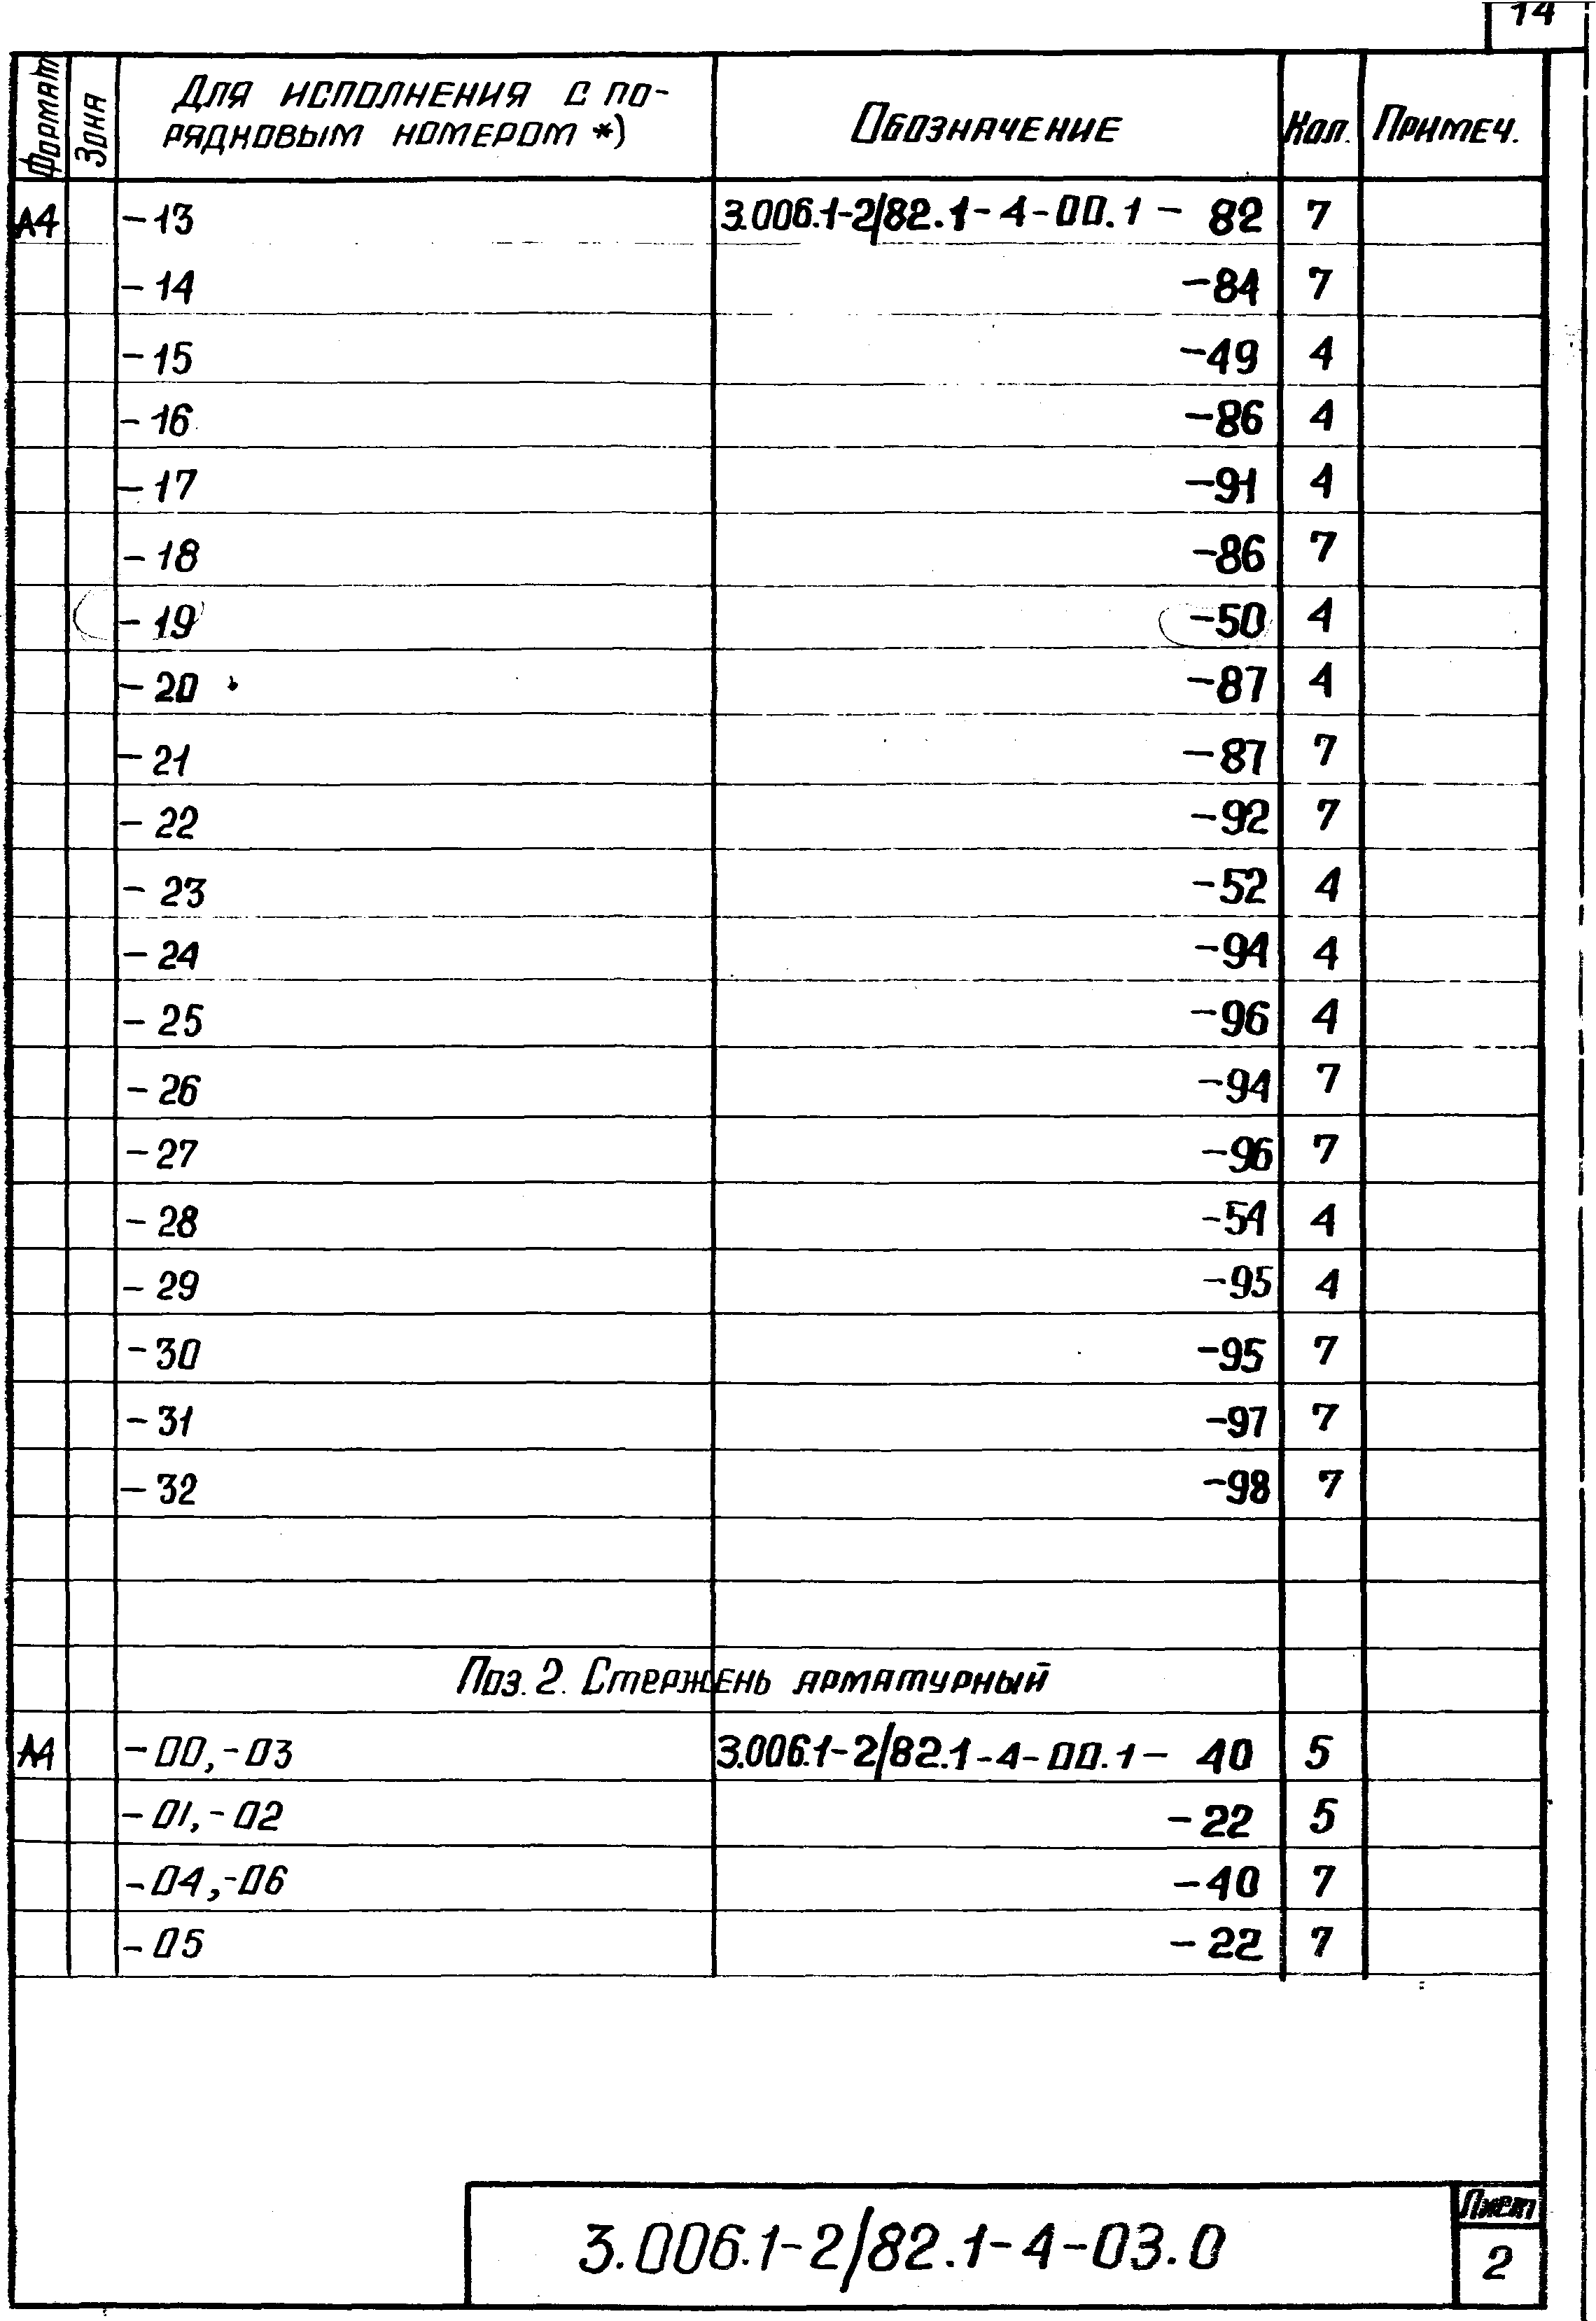 14
Формат
Зона
Для исполнения с по-
рядковым номером *)
Обозначение
Кол.
Примеч.
А4 -13 3.006.1-2/82.1-4-00.1- 82 7
-14 -84 7
-15 -49 4
-16 -86 4
-17 -91 4
-18 -86 7
-19 -50 4
-20 -87 4
-21 -87 7
-22 -92 7
-23 -52 4
-24 -94 4
-25 -96 4
-26 -94 7
-27 -96 7
-28 -54 4
-29 -95 4
-30 -95 7
-31 -97 7
-32 -98 7
Поз. 2. Стержень арматурный
А4 -00,-03 3.006.1-2/82.1-4-00.1- 40 5
-01,-02 -22 5
-04,-06 -40 7
-05 -22 7
3.006.1-2/82.1-4-03.0
Лист
2